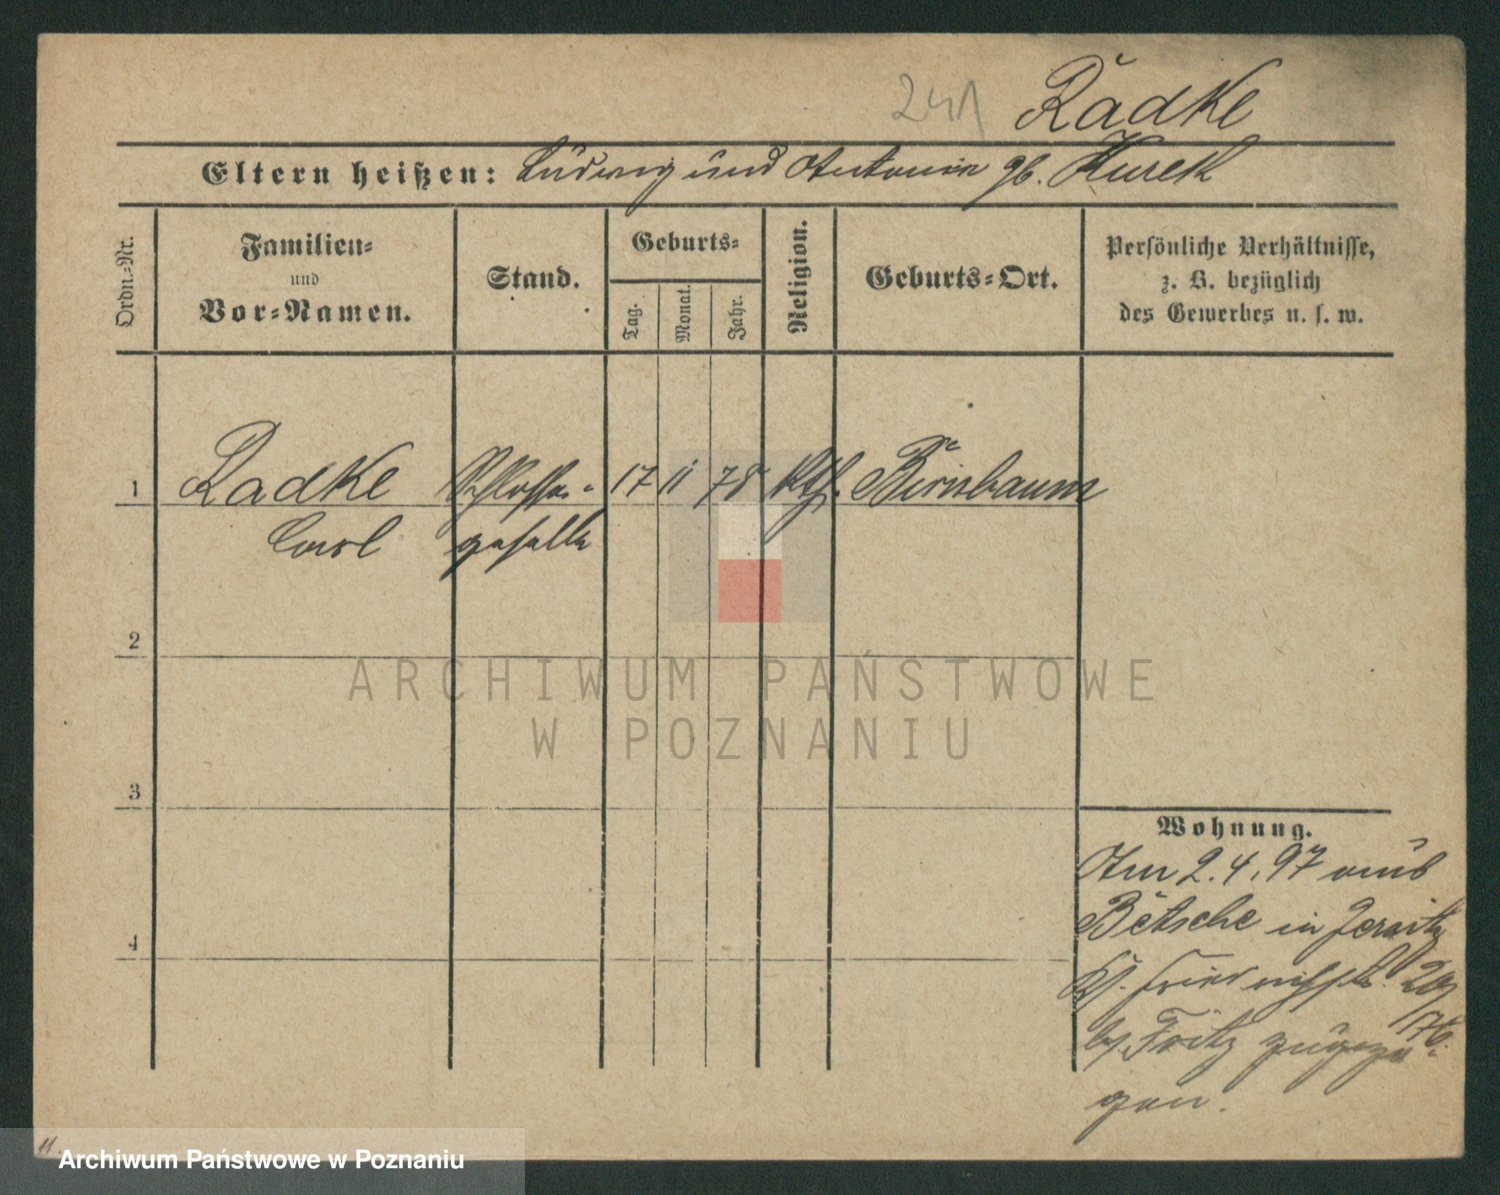 241 Radke
Eltern heißen: Ludwig und Antonie gb. Kurek
Ordn.-Nr.
Familien-
und
Vor-Namen.
Stand.
Geburts-
Tag.
Monat.
Jahr.
Religion.
Geburts-Ort.
Persönliche Verhältnisse,
z. B. bezüglich
des Gewerbes u. s. w.
1 Radke Schlosser- 17 11 78 kth. Birnbaum
Carl geselle
2
ARCHIWUM PAŃSTWOWE
W POZNANIU
3
4
Wohnung.
Am 2.4.97 aus
Betsche in Jersitz
Friedrichstr. 20
b/ Fritz zugezo-
gen.
Archiwum Państwowe w Poznaniu